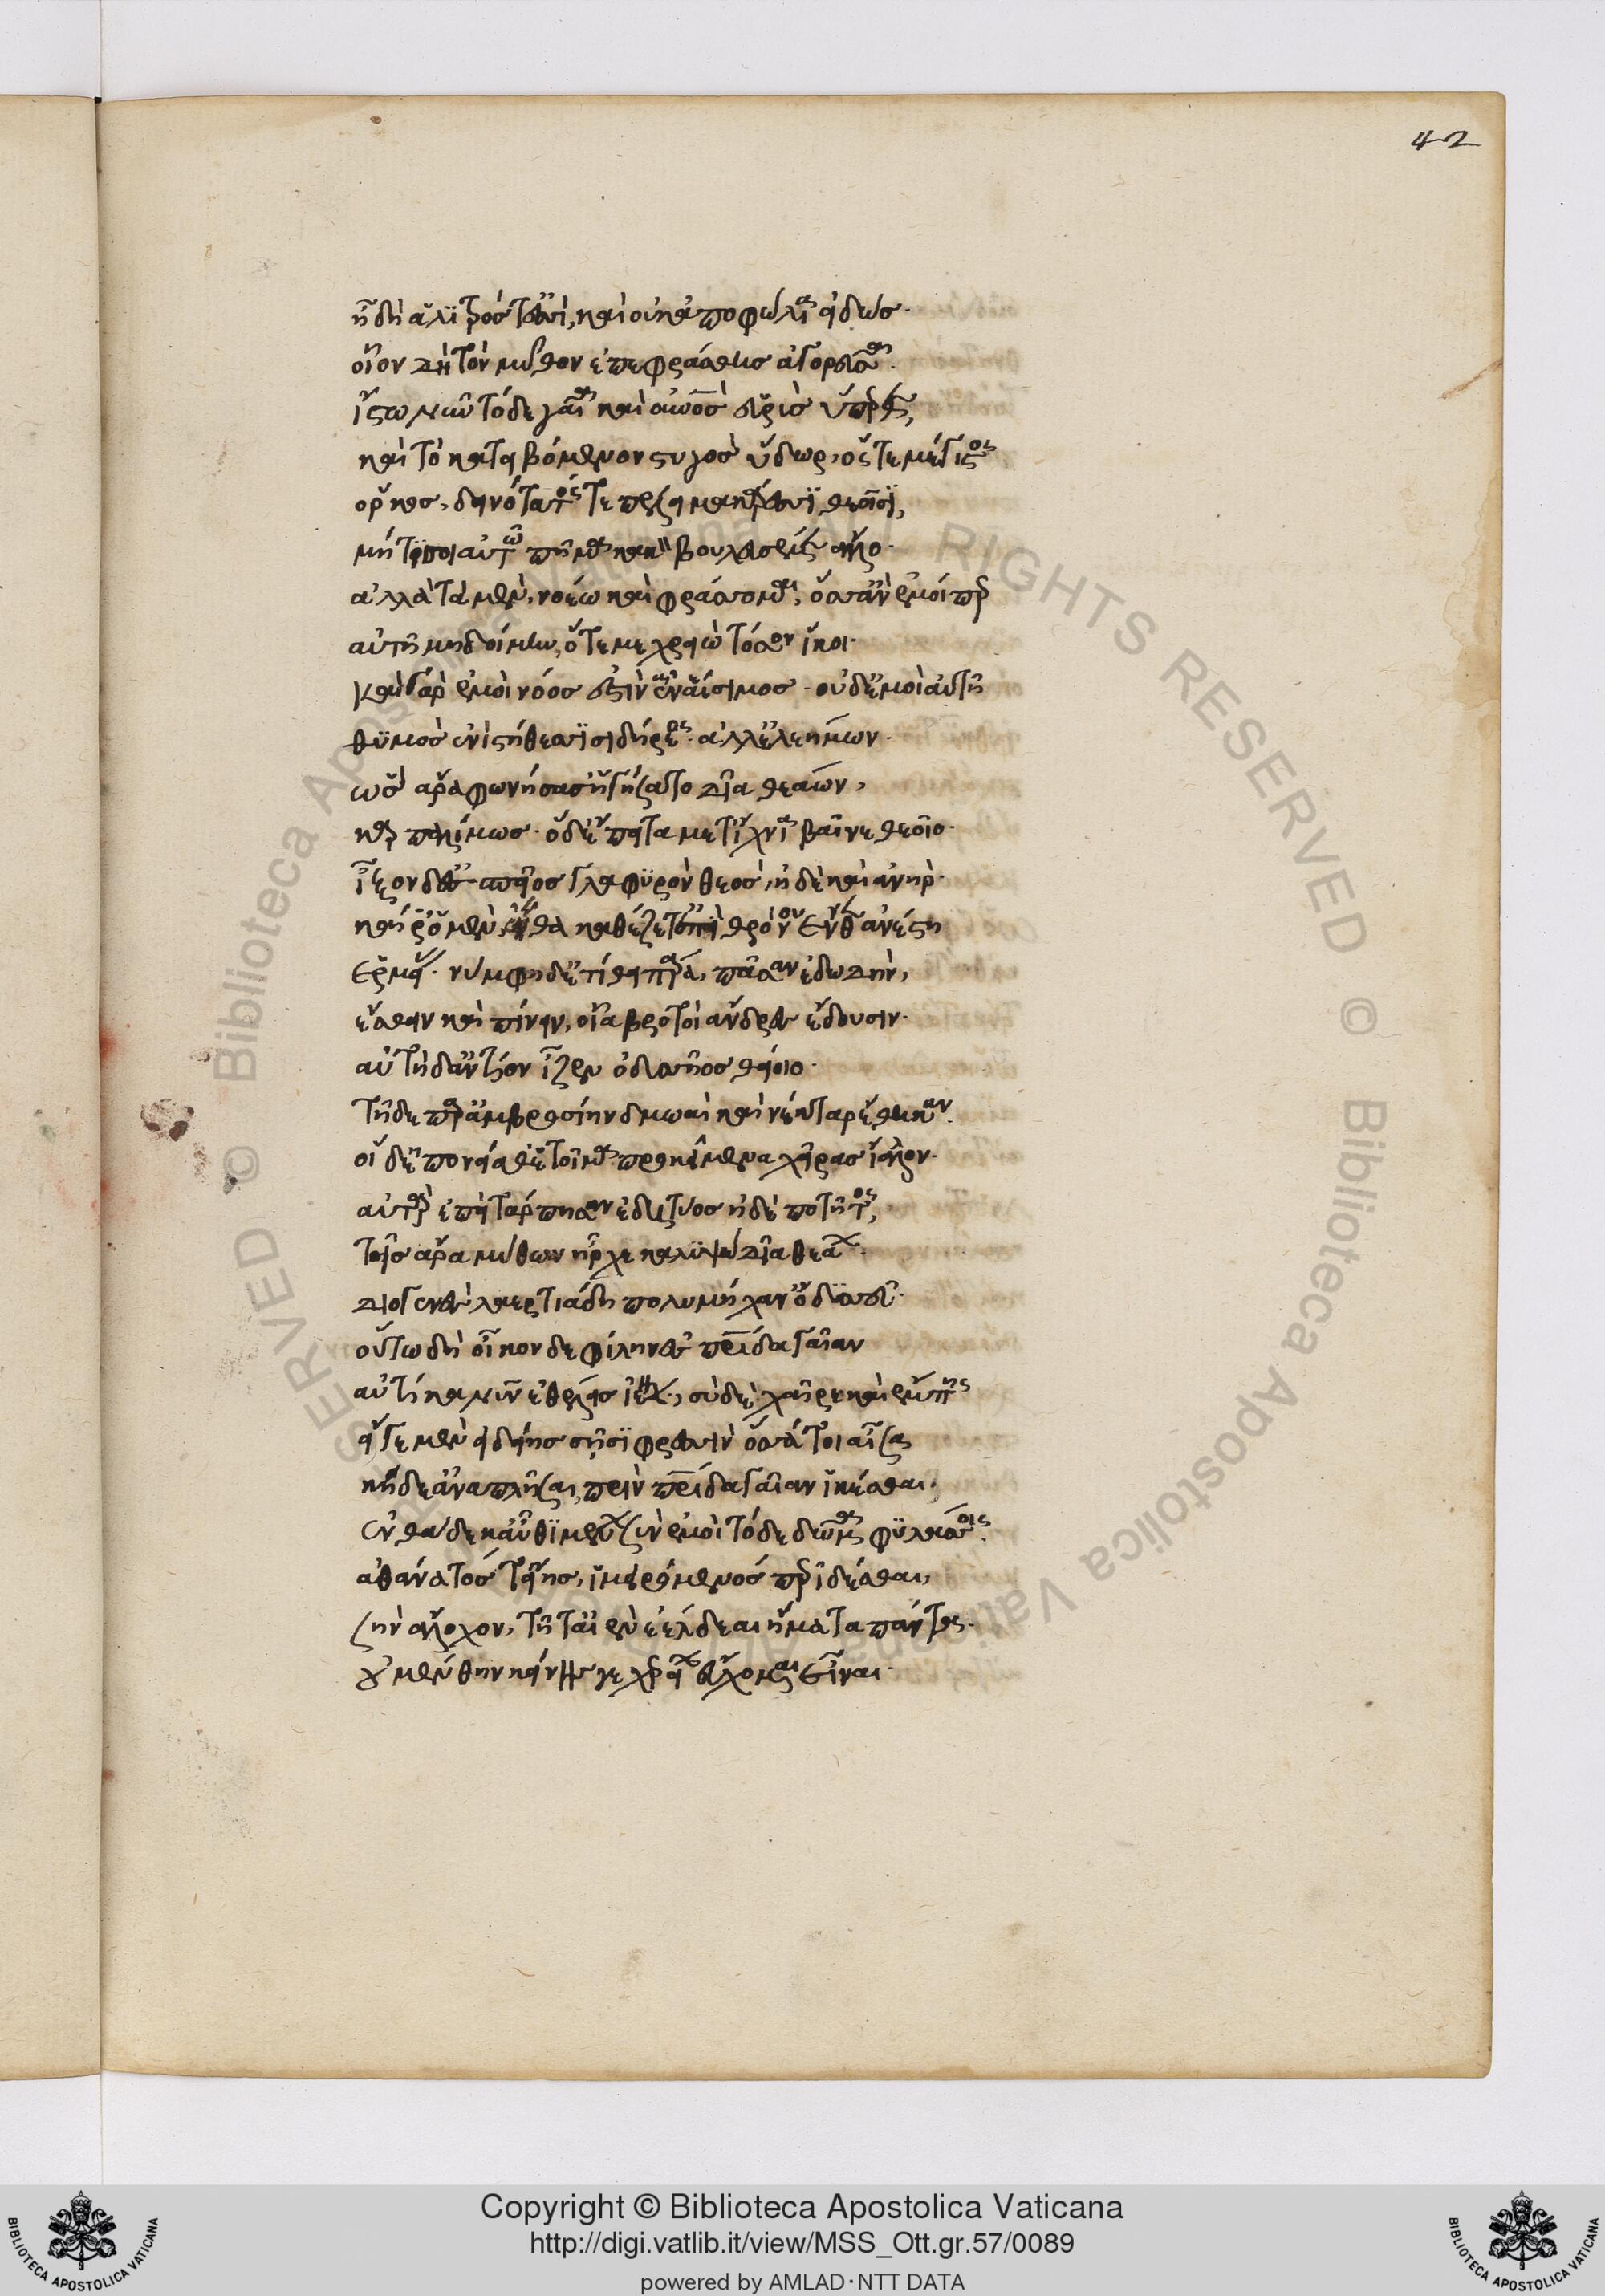 42
ἦ δὴ ἀλιτρός τ' ἐσσὶ, καὶ οὐκ ἀποφώλια εἰδώς·
οἷον δὴ τὸν μῦθον ἐπεφράσθης ἀγορεῦσαι·
ἴστω νῦν τόδε γαῖα καὶ οὐρανὸς εὐρὺς ὕπερθε,
καὶ τὸ κατειβόμενον στυγὸς ὕδωρ, ὅς τε μέγιστος
ὅρκος, δεινότατός τε πέλει μακάρεσσι θεοῖσι,
μήτι σοι αὐτῷ πῆμα κακὸν βουλευσέμεν ἄλλο·
ἀλλὰ τὰ μὲν, νοέω καὶ φράσσομαι, ὅσσ' ἂν ἐμοί περ
αὐτῇ μηδοίμην, ὅτε με χρειὼ τόσον ἵκοι·
καὶ γὰρ ἐμοὶ νόος ἐστὶν ἐναίσιμος· οὐδέ μοι αὐτῇ
θυμὸς ἐνὶ στήθεσσι σιδήρεος· ἀλλ' ἐλεήμων·
ὣς ἄρα φωνήσασ' ἡγήσατο δῖα θεάων,
καρπαλίμως· ὁ δ' ἔπειτα μετ' ἴχνια βαῖνε θεοῖο·
ἷξον δὲ σπεῖος γλαφυρὸν θεὸς, ἠδὲ καὶ ἀνήρ·
καί ῥ' ὁ μὲν ἔνθα καθέζετ' ἐπὶ θρόνου ἔνθεν ἀνέστη
Ἑρμείας· νύμφη δ' ἐτίθει παρὰ, πᾶσαν ἐδωδὴν,
ἔσθειν καὶ πίνειν, οἷα βροτοὶ ἄνδρες ἔδουσιν·
αὐτὴ δ' ἀντίον ἷζεν ὀδυσσῆος θείοιο·
τῇ δὲ παρ' ἀμβροσίην δμωαὶ καὶ νέκταρ ἔθηκαν·
οἱ δ' ἐπ' ὀνείαθ' ἑτοῖμα προκείμενα χεῖρας ἴαλλον·
αὐτὰρ ἐπεὶ τάρπησαν ἐδητύος ἠδὲ ποτῆτος,
τοῖς ἄρα μύθων ἦρχε καλυψὼ δῖα θεάων·
διογενὲς λαερτιάδη πολυμήχαν' ὀδυσσεῦ·
οὕτω δὴ οἶκον δε φίλην ἐς πατρίδα γαῖαν
αὐτίκα νῦν ἐθέλεις ἰέναι, σὺ δὲ χαῖρε καὶ ἔμπης
εἴ γε μὲν εἰδείης σῇσι φρεσὶν ὅσσά τοι αἶσα
κήδε' ἀναπλῆσαι, πρὶν πατρίδα γαῖαν ἱκέσθαι·
ἐνθάδε κ' αὖθι μένων σὺν ἐμοὶ τόδε δῶμα φυλάσσοις·
ἀθάνατός τ' εἴης, ἱμειρόμενός περ ἰδέσθαι,
σὴν ἄλοχον, τῆς τ' αἰὲν ἐέλδεαι ἤματα πάντα·
οὐ μέν θην κείνης γε χερείων εὔχομαι εἶναι·
Copyright © Biblioteca Apostolica Vaticana
http://digi.vatlib.it/view/MSS_Ott.gr.57/0089
powered by AMLAD·NTT DATA